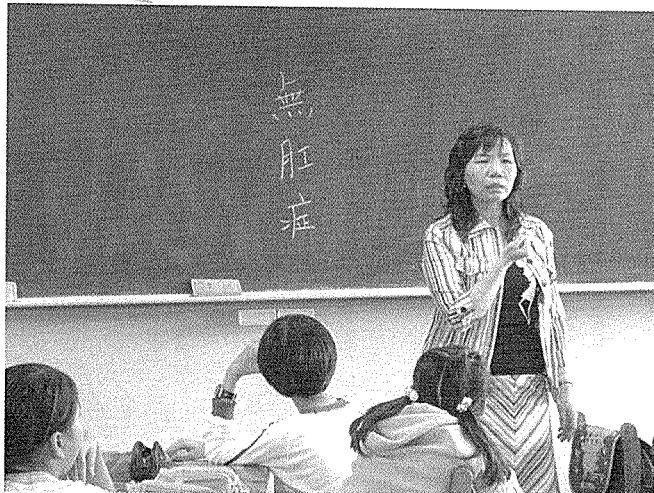 無肛症